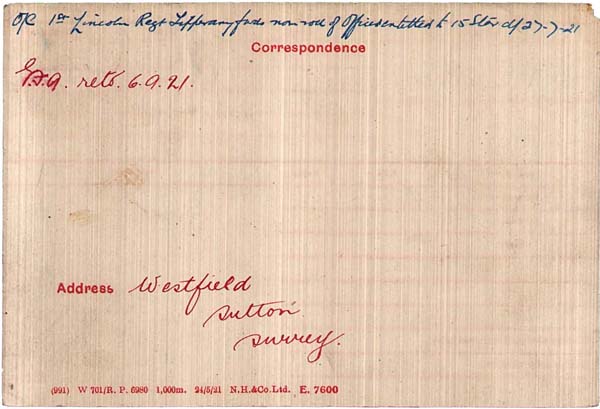 O/C 1st Lincoln Regt Tipperary fwds nom roll of Officers entitled to 15 Star d/ 27-7-21
Correspondence
retd. 6.9.21.
Address Westfield
Sutton
Surrey.
(991) W 701/R. P. 6980 1,000m. 24/5/21 N.H.&Co.Ltd. E. 7600